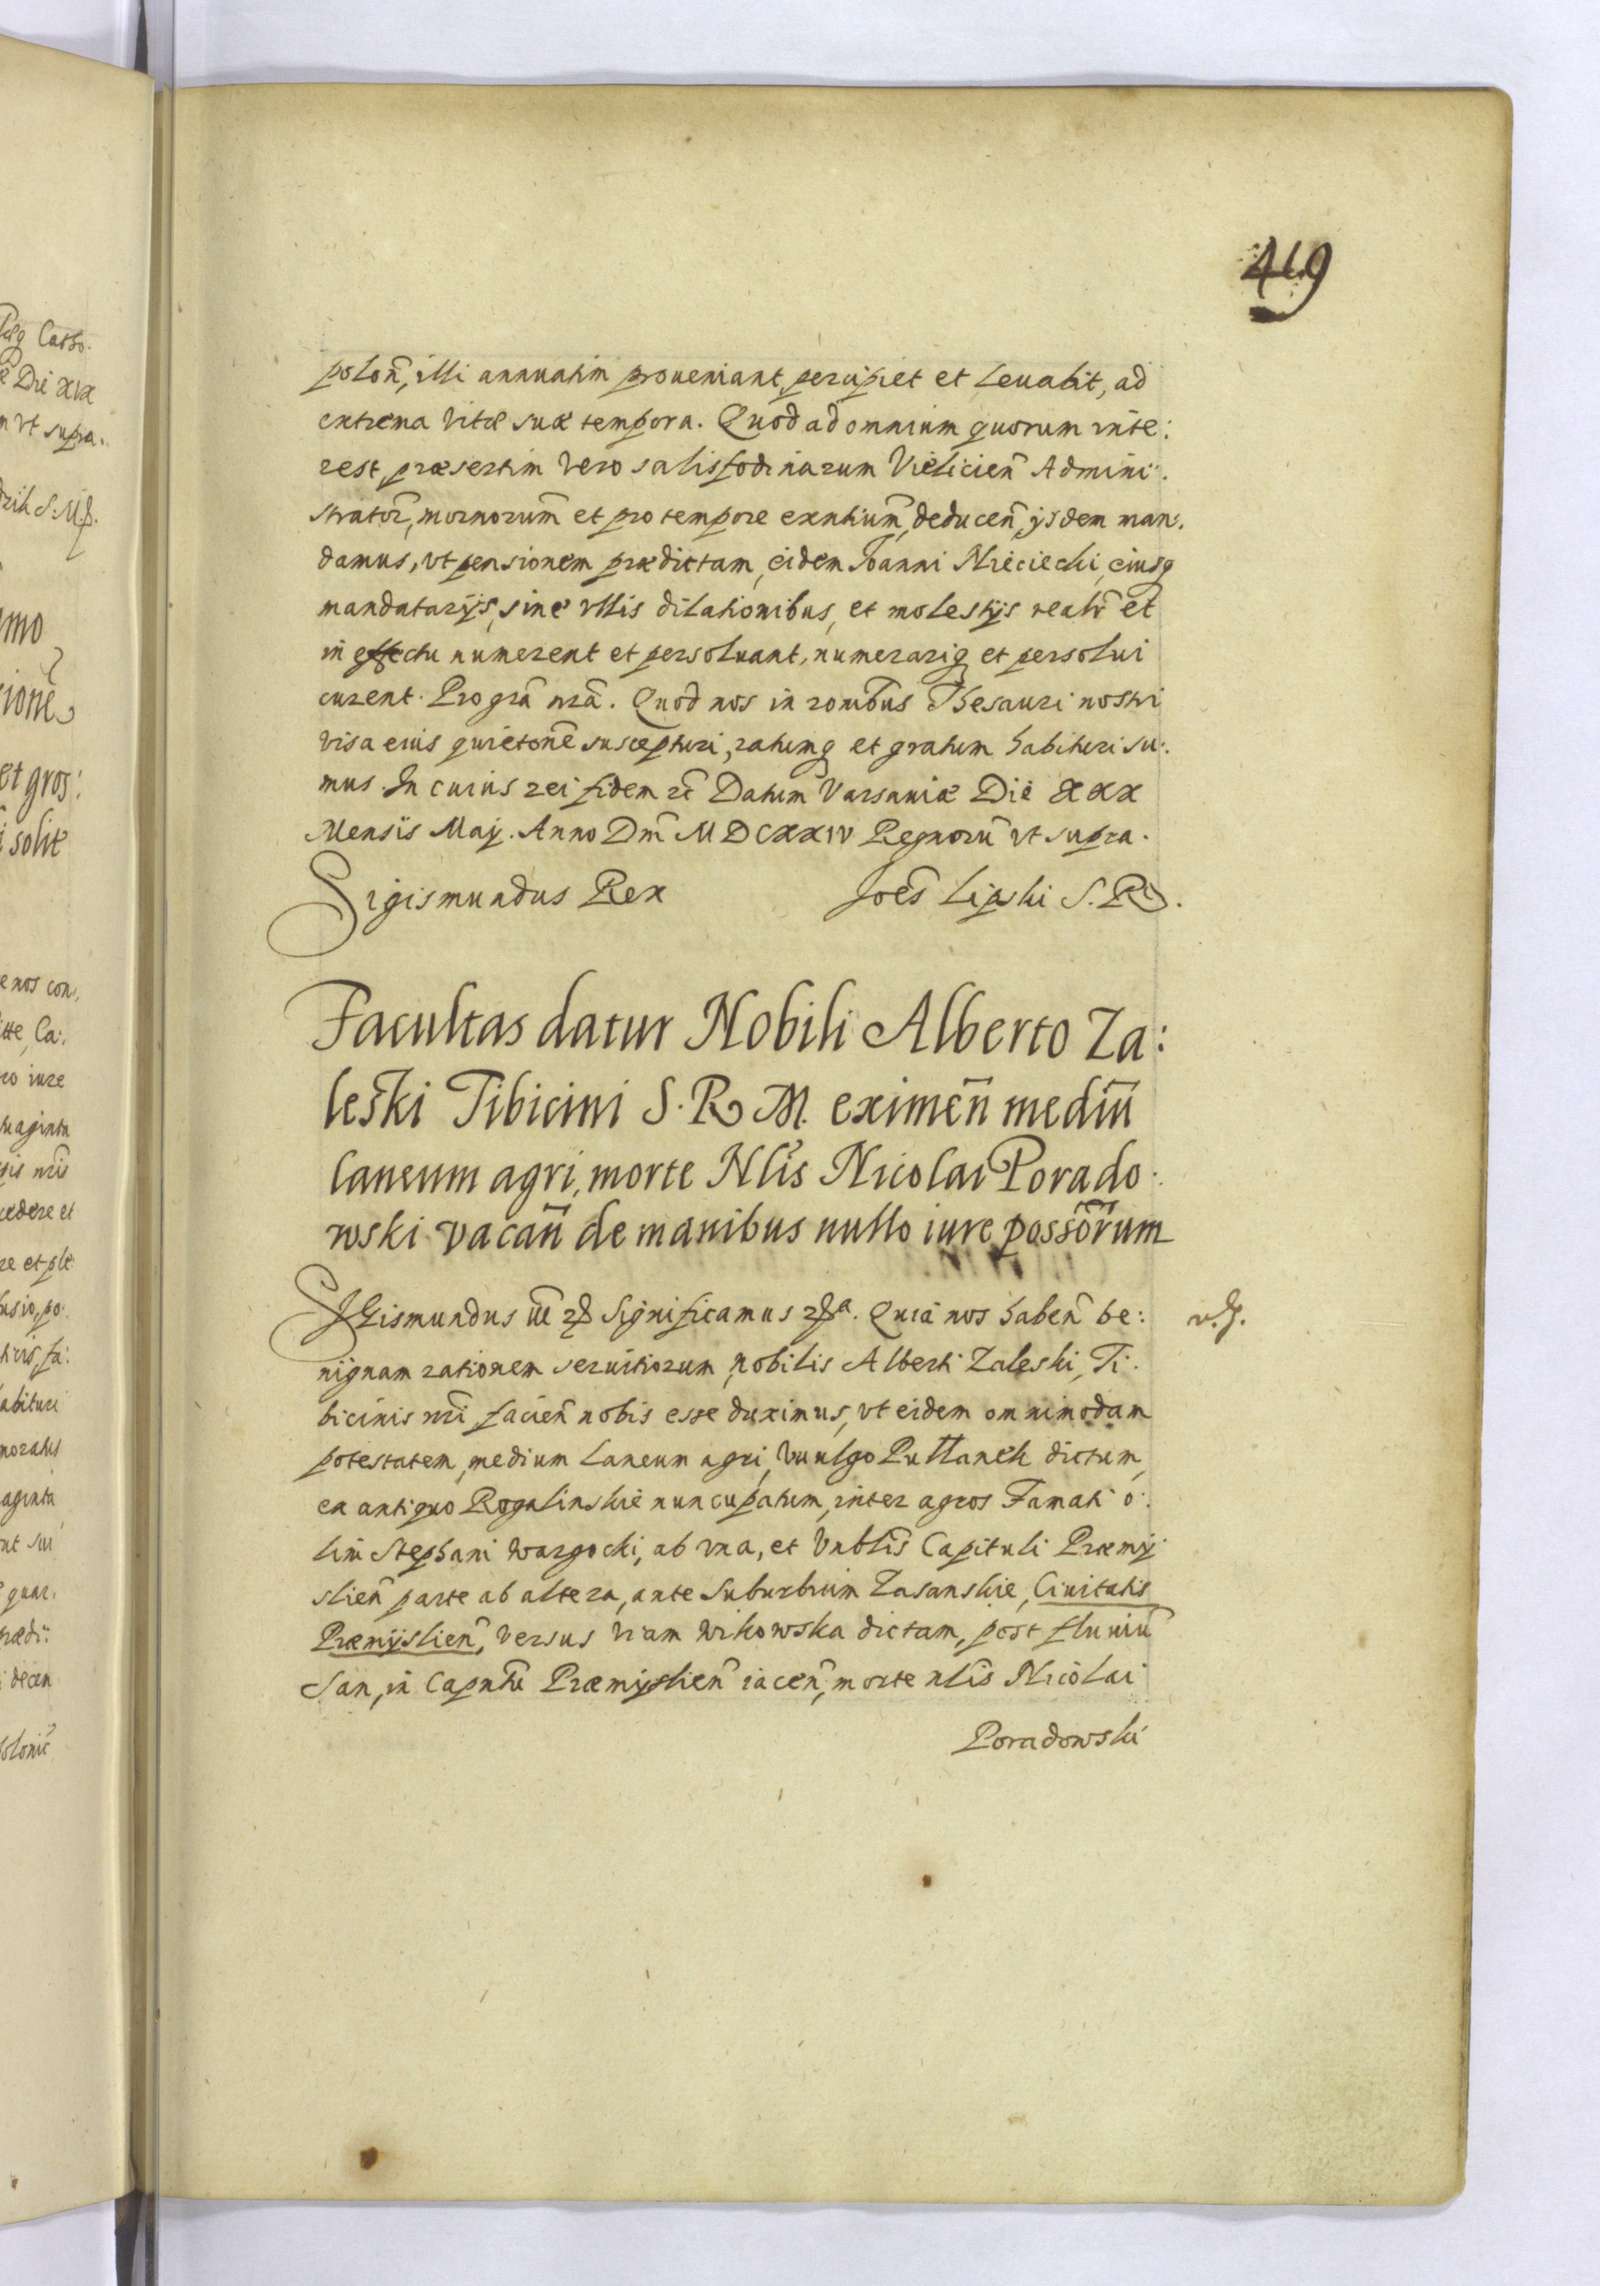 419
polon̄, illi annuatim proueniant, percipiet et leuabit, ad
extrema vitæ suæ tempora. Quod ad omnium quorum inte:
rest, præsertim vero salisfodinarum Vielicien̄ Admini:
strator̄, modernorum̄ et pro tempore exn̄tium̄, deducen̄, ijsdem man:
damus, vt pensionem prædictam, eidem Joanni Nieciecki, eiusq
mandatarijs, sine vllis dilationibus, et molestijs realr̄ et
in effectu numerent et persoluant, numerariq et persolui
curent. Pro gr̄a nr̄a. Quod nos in ronib̄us Thesauri nostri
visa eius quieton̄e suscepturi, ratumq et gratum habituri su:
mus. In cuius rei fidem etc̄ Datum Varsauiæ Die XXX
Mensis Maij. Anno Dn̄i MDCXXIV Regnorū vt supra.
Sigismundus Rex Joēs Lipski S. R.
Facultas datur Nobili Alberto Za:
leski Tibicini S. R. M. eximen̄ mediū
laneum agri, morte Nlis Nicolai Porado:
wski vacan̄ de manibus nullo iure possor̄um
SIGismundus Significamus Quia nos haben̄ be:
nignam rationem seruitiorum, nobilis Alberti Zaleski, Ti:
bicinis nr̄i, facien̄ nobis esse duximus, vt eidem omnimodam
potestatem, medium laneum agri, vuulgo Pullanek dictum,
ex antiquo Rogalinskie nuncupatum, inter agros Famati o:
lim Stephani Wargocki, ab vna, et Vnblis̄ Capituli Præmij
slien̄ parte ab altera, ante suburbium Zasanskie, Ciuitatis
Præmijslien̄, versus viam Wikowska dictam, post fluuiū
San, in Capn̄tu Præmijslien̄ iacen̄, morte nlis̄ Nicolai
Poradowski